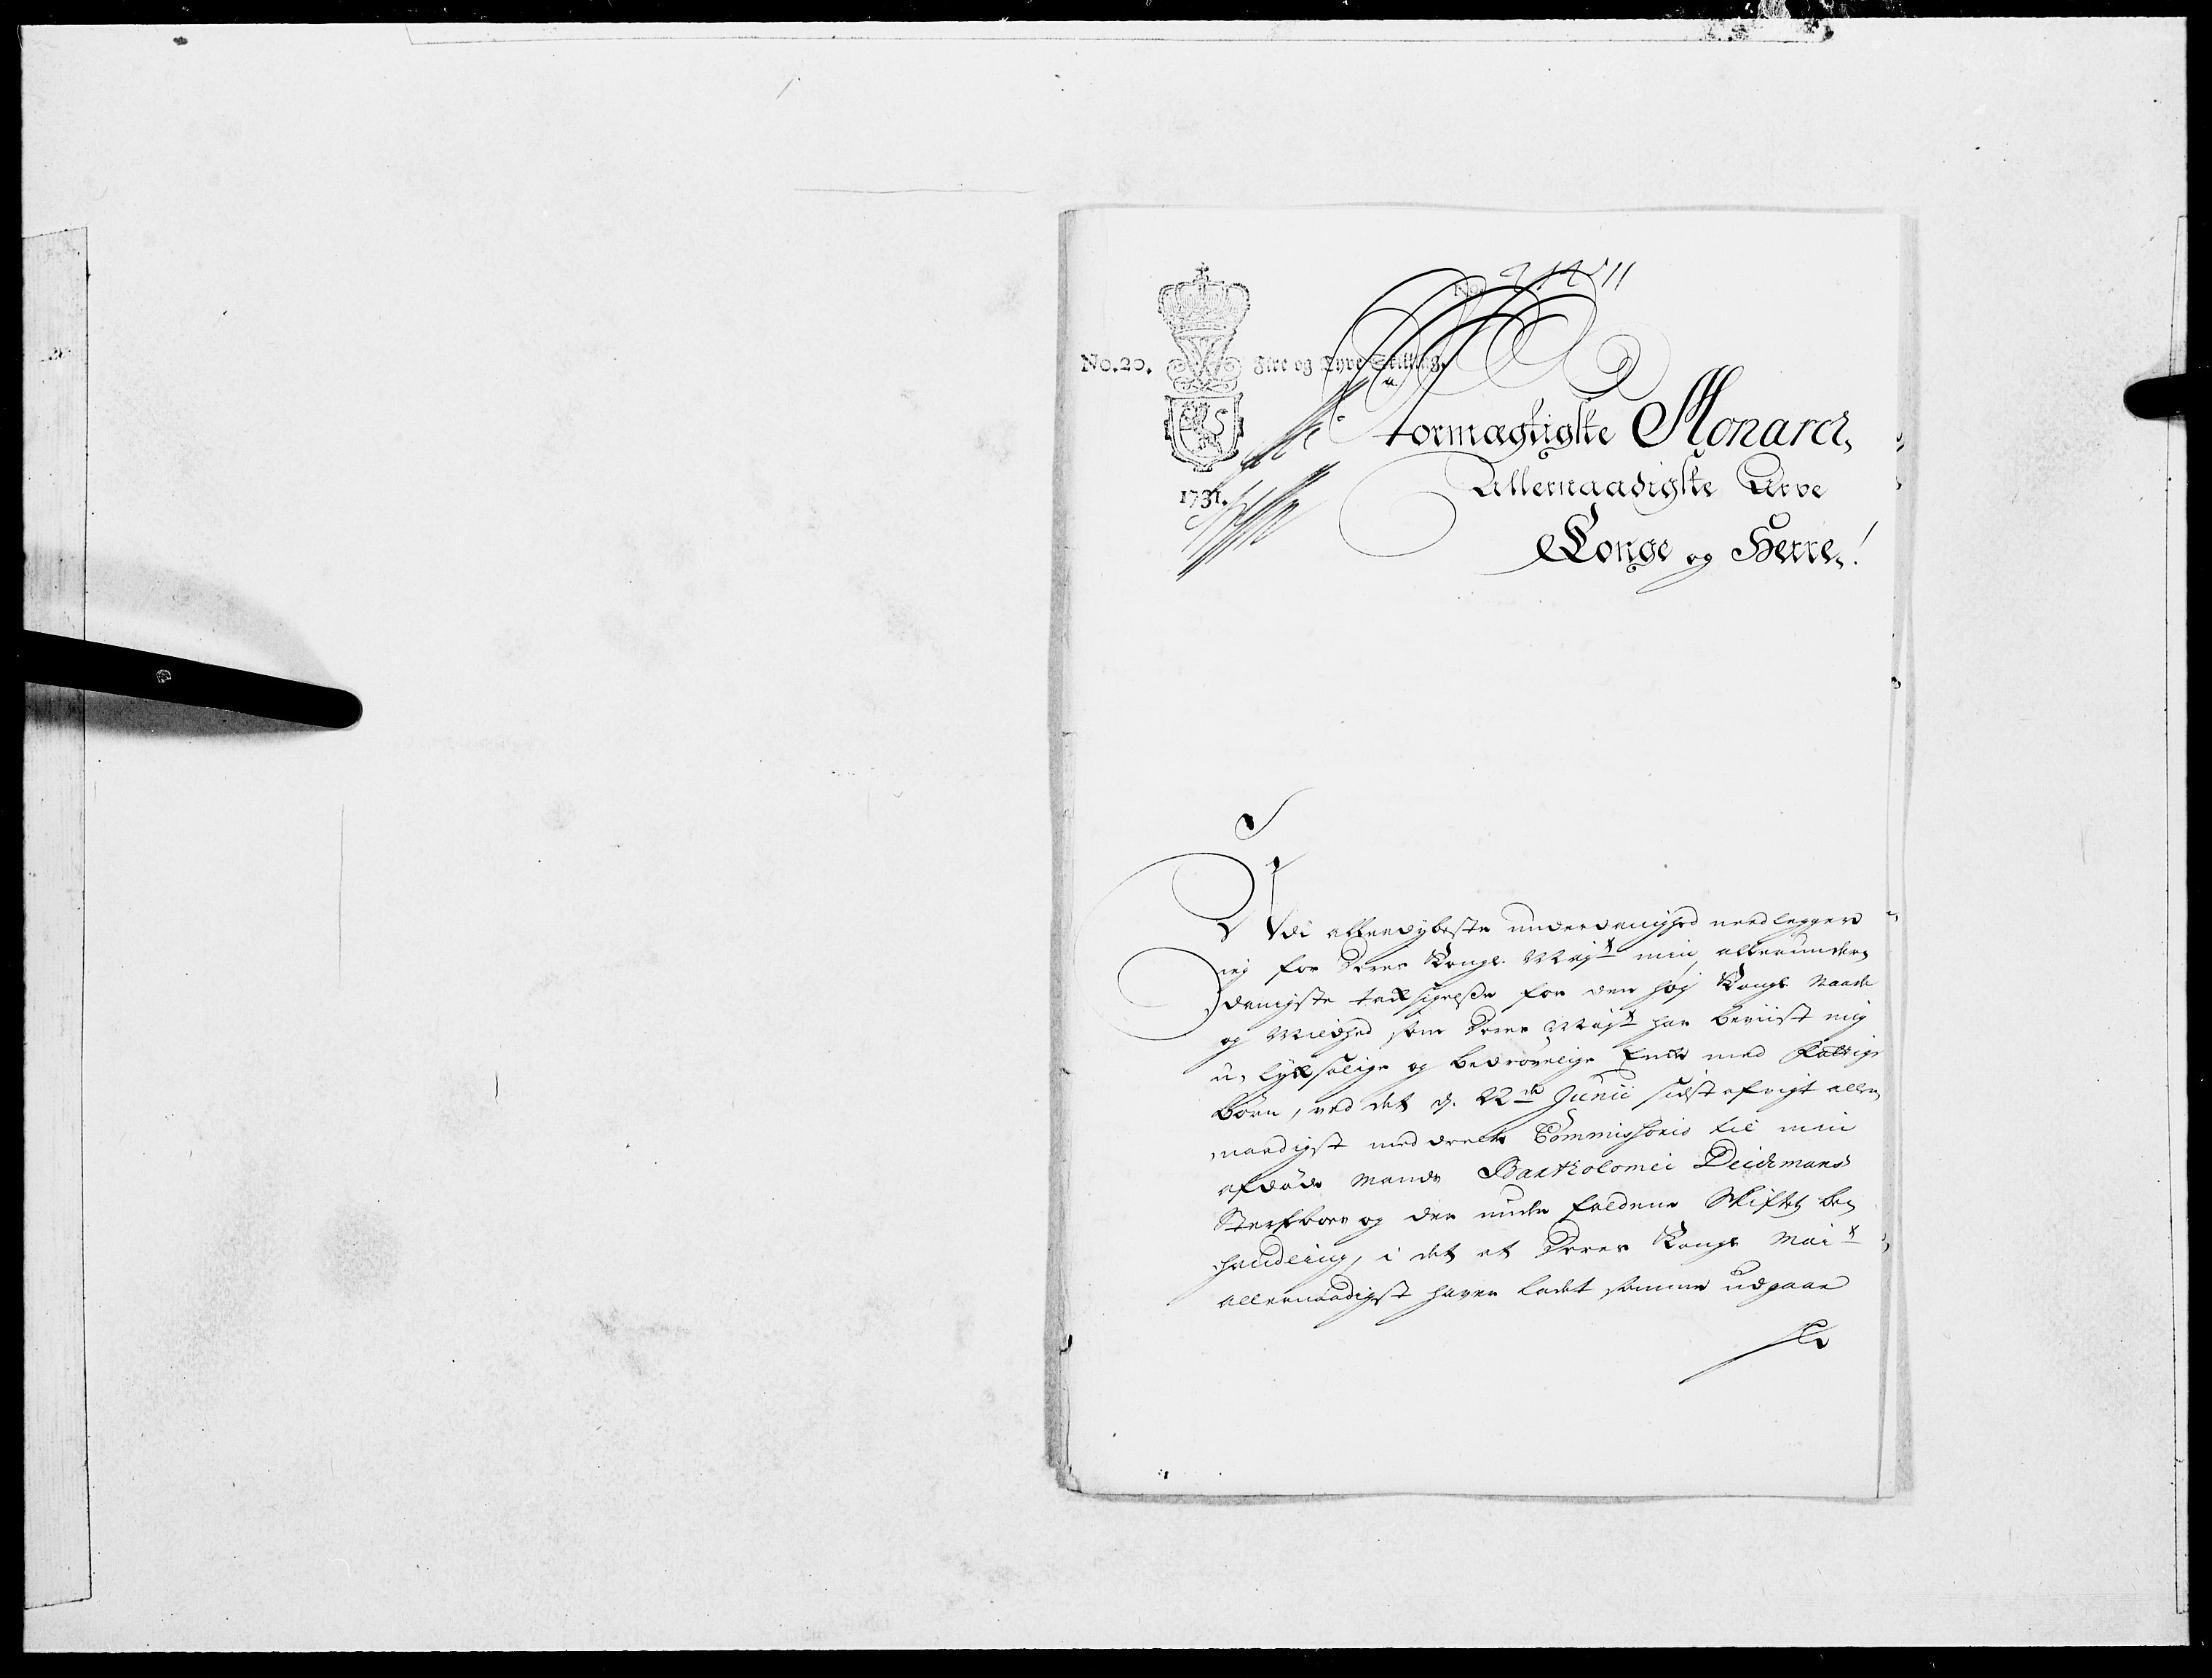 No. 20.
Fire og Tyve Skilling.
1731.
Stormægtigste Monarch,
Allernaadigste Arve
Konge og Herre!
Udi allerdybeste underdanighed needlegger
ieg for Deres Kongl: Mayt min allerunder-
danigste taksigelse for den høy Kongl Naade
og Mildhed som Deres Mayt har beviist mig
u-lyksalige og bedrøvelige Enke med fattige
børn, ved det d. 22de Junii sidst afvigt aller-
naadigst meddeelte Commissorio til min
afdøde Mands Bartholomei Deichmans
Sterfboe og der under faldene Skiftes be-
handling, i det at Deres Kongl Mait
allernaadigst haver ladet samme udgaae